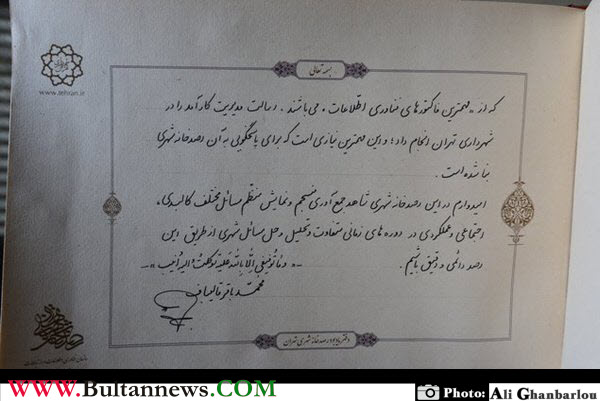 بسمه تعالی
www.tehran.ir
که از «مهمترین فاکتورهای فناوری اطلاعات» می باشند، رسالت مدیریت کارآمد را در
شهرداری تهران انجام داد؛ و این مهمترین نیازی است که برای پاسخگویی به آن رصدخانه شهری
بنا شده است.
امیدوارم در این رصدخانه شهری شاهد جمع آوری منسجم و نمایش منظم مسائل مختلف کالبدی،
اجتماعی و عملکردی در دوره های زمانی متفاوت و تحلیل و حل مسائل شهری از طریق این
رصد دائمی و دقیق باشیم. «و ما توفیقی الا بالله علیه توکلت و الیه انیب»
محمد باقر قالیباف
دفتر یادبود رصدخانه شهری تهران
www.Bultannews.COM
Photo: Ali Ghanbarlou